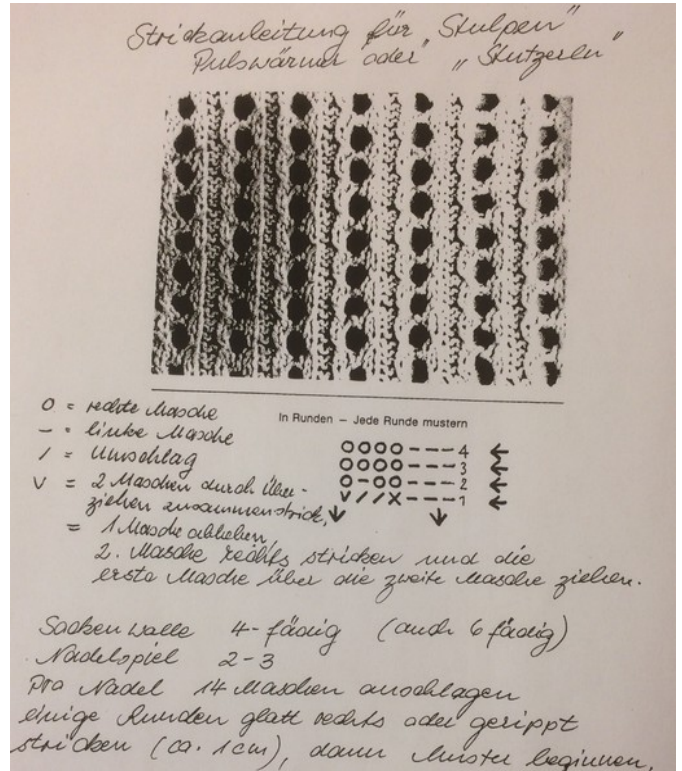 Strickanleitung für „Stulpen"
Pulswärmer oder „Stutzerln"
O = rechte Masche
– = linke Masche
/ = Umschlag
V = 2 Maschen durch Über-
ziehen zusammenstrick.
= 1 Masche abheben,
2. Masche rechts stricken und die
erste Masche über die zweite Masche ziehen.
In Runden – Jede Runde mustern
O O O O – – – 4 ←
O O O O – – – 3 ←
O – O O – – – 2 ←
V / / X – – – 1 ←
Socken wolle 4-fädig (auch 6 fädig)
Nadelspiel 2-3
Pro Nadel 14 Maschen anschlagen
einige Runden glatt rechts oder gerippt
stricken (ca. 1cm), dann Muster beginnen.